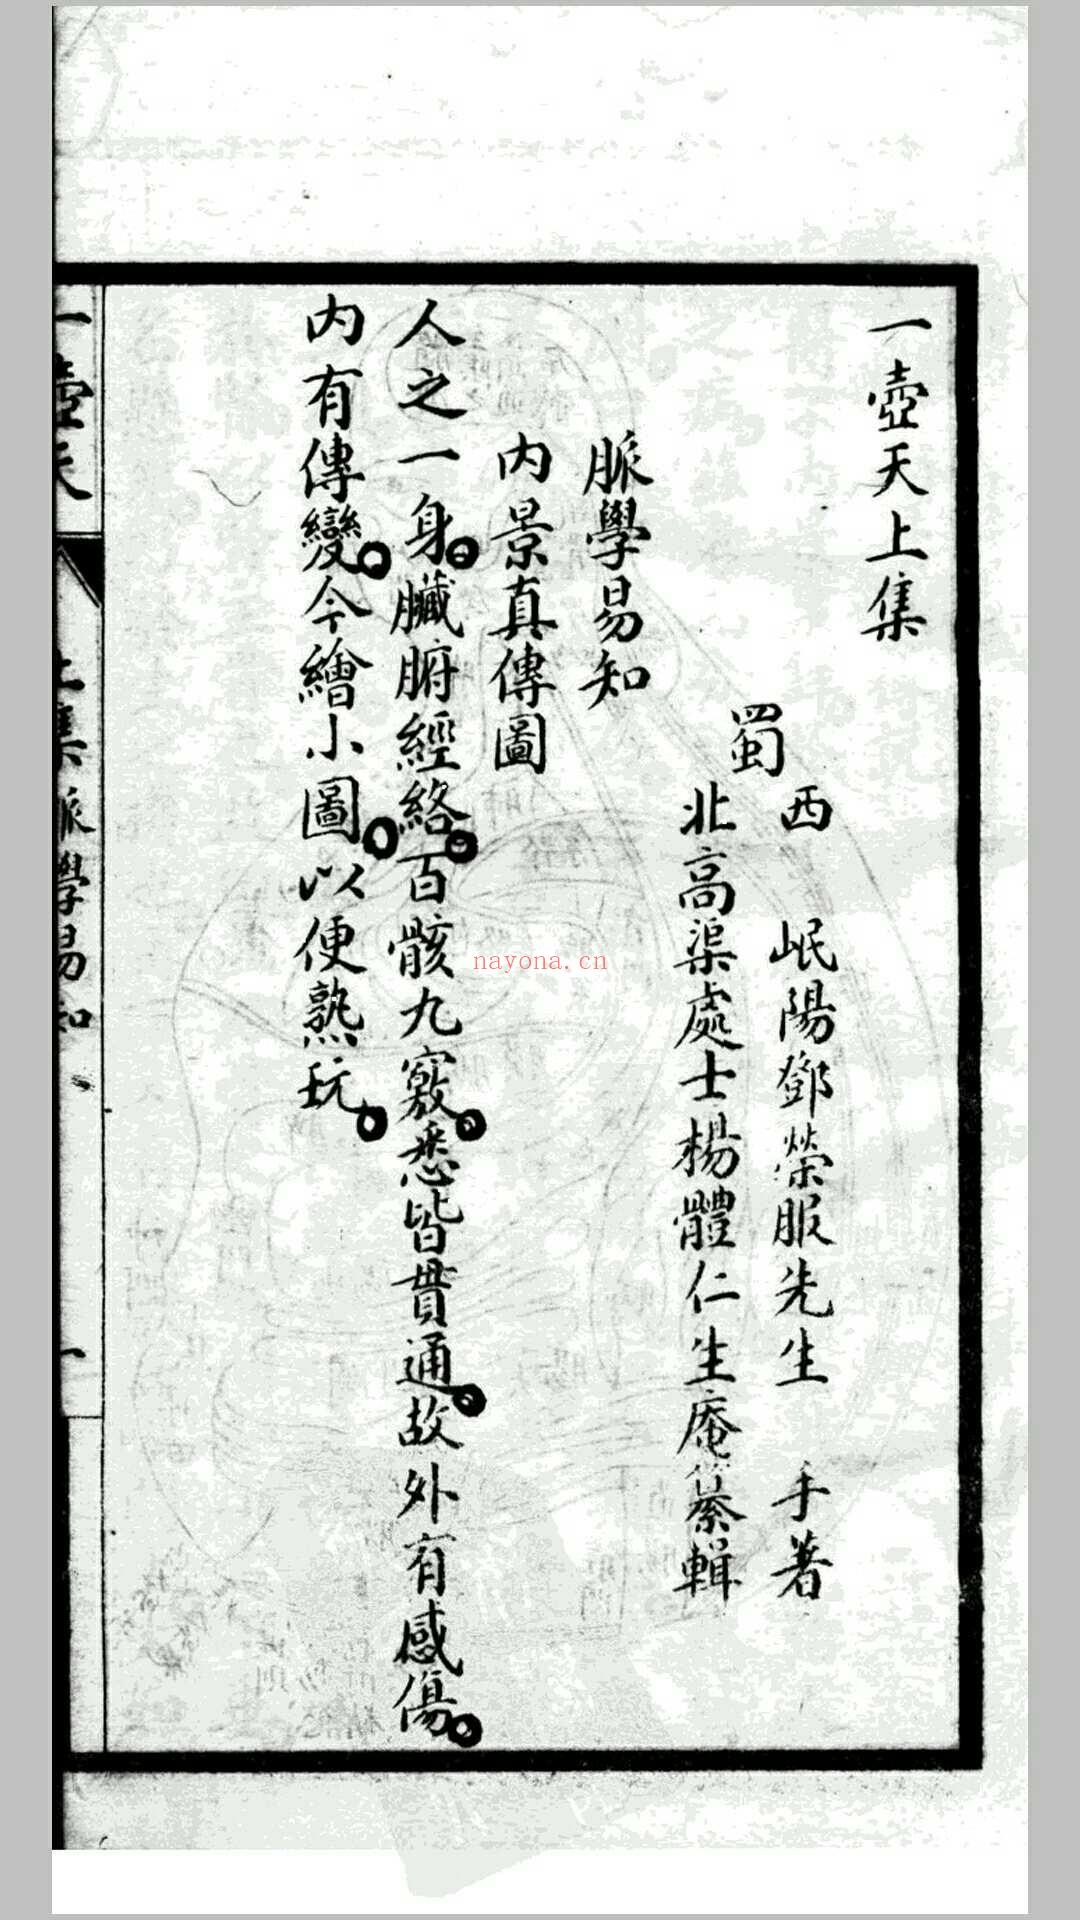 一壺天上集
蜀
西 岷陽鄧榮服先生 手著
北高渠處士楊體仁生庵纂輯
脈學易知
內景真傳圖
人之一身。臟腑經絡。百骸九竅。悉皆貫通。故外有感傷。
內有傳變。今繪小圖。以便熟玩。
一壺天
上集 脈學易知
一
nayona.cn